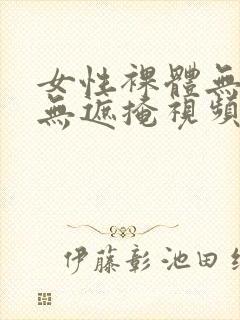 女性裸體無
無遮掩視頻
伊藤彰 池田